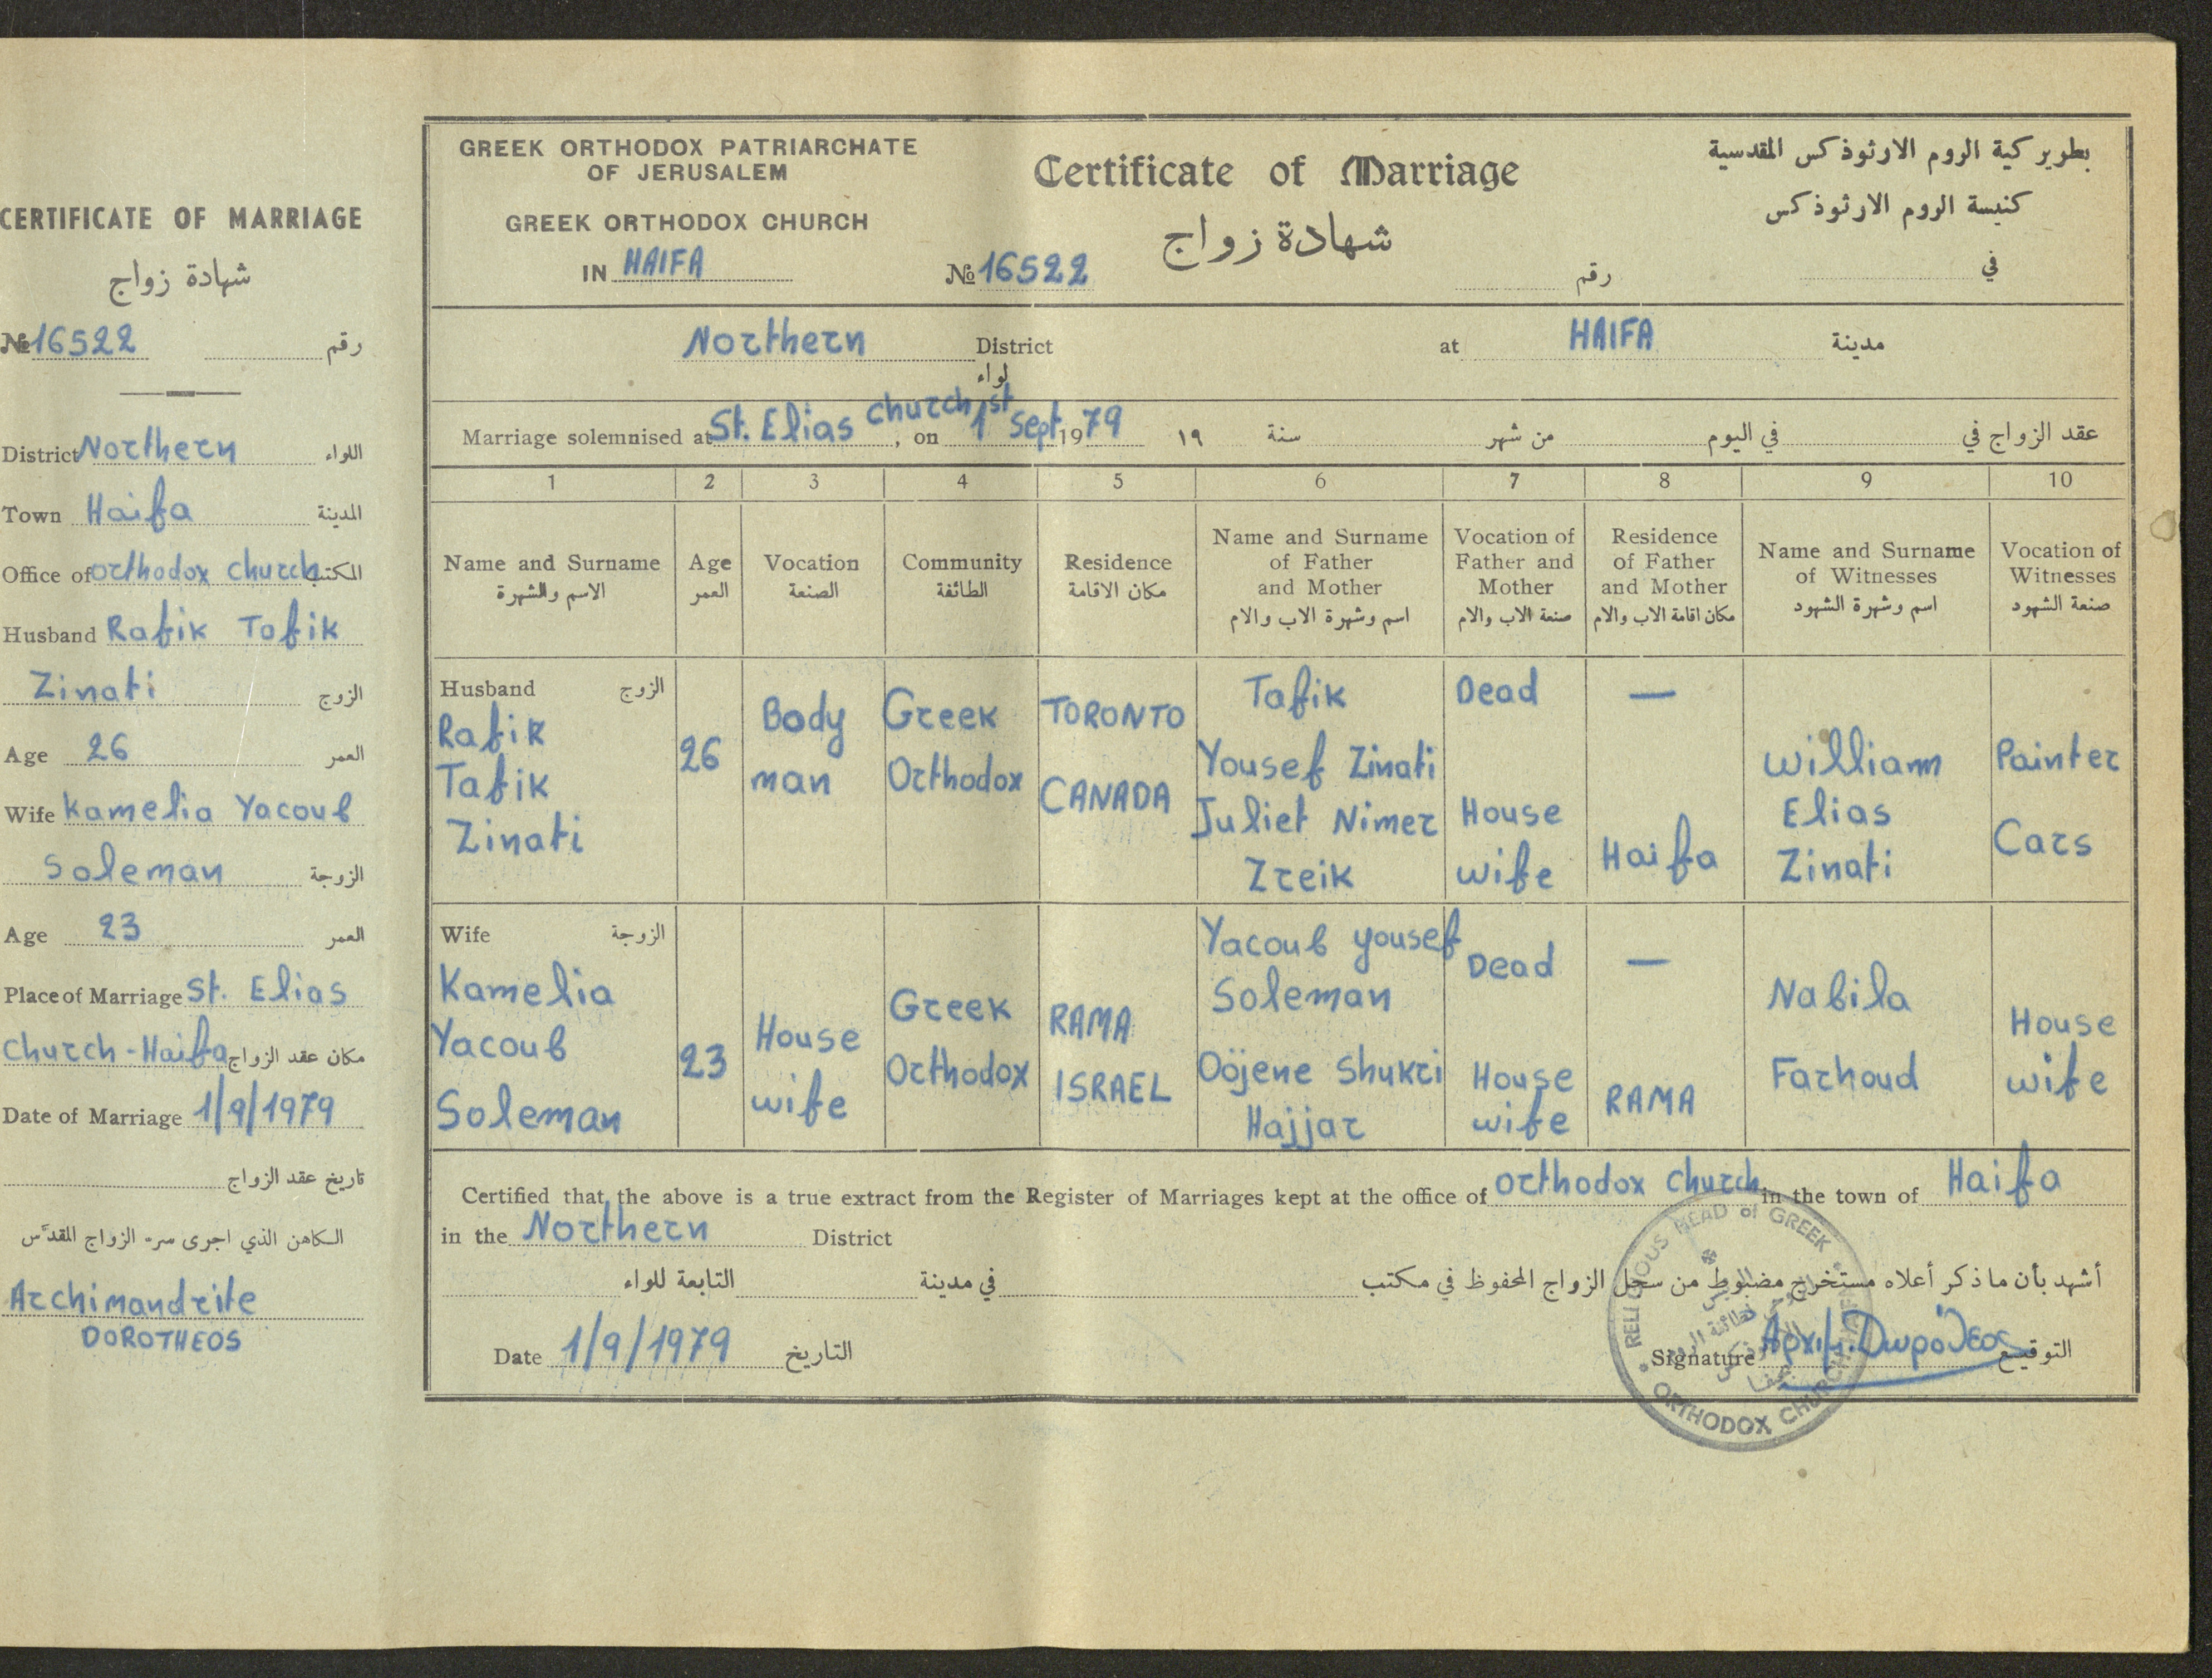 CERTIFICATE OF MARRIAGE
شهادة زواج
№ 16522 رقم
District Northern اللواء
Town Haifa المدينة
Office of orthodox church المكتب
Husband Rafik Tofik
Zinati الزوج
Age 26 العمر
Wife Kamelia Yacoub
Soleman الزوجة
Age 23 العمر
Place of Marriage St. Elias
church - Haifa مكان عقد الزواج
Date of Marriage 1/9/1979
تاريخ عقد الزواج
الكاهن الذي اجرى سرّ الزواج المقدّس
Archimandrite
DOROTHEOS
GREEK ORTHODOX PATRIARCHATE
OF JERUSALEM
GREEK ORTHODOX CHURCH
IN HAIFA
Certificate of Marriage
شهادة زواج
№ 16522 رقم
بطوير كية الروم الارثوذكس المقدسية
كنيسة الروم الارثوذكس
في
Northern District at HAIFA مدينة
لواء
Marriage solemnised at St. Elias church, on 1st Sept 1979 ١٩ سنة من شهر في اليوم عقد الزواج في
1 2 3 4 5 6 7 8 9 10
Name and Surname
الاسم والشهرة
Age
العمر
Vocation
الصنعة
Community
الطائفة
Residence
مكان الاقامة
Name and Surname
of Father
and Mother
اسم وشهرة الاب والام
Vocation of
Father and
Mother
صنعة الاب والام
Residence
of Father
and Mother
مكان اقامة الاب والام
Name and Surname
of Witnesses
اسم وشهرة الشهود
Vocation of
Witnesses
صنعة الشهود
Husband الزوج
Rafik
Tafik
Zinati
26
Body
man
Greek
Orthodox
TORONTO
CANADA
Tafik
Yousef Zinati
Juliet Nimer
Zreik
Dead
House
wife
—
Haifa
William
Elias
Zinati
Painter
Cars
Wife الزوجة
Kamelia
Yacoub
Soleman
23
House
wife
Greek
Orthodox
RAMA
ISRAEL
Yacoub yousef
Soleman
Oöjene Shukri
Hajjar
Dead
House
wife
—
RAMA
Nabila
Farhoud
House
wife
Certified that the above is a true extract from the Register of Marriages kept at the office of orthodox church in the town of Haifa
in the Northern District
أشهد بأن ما ذكر أعلاه مستخرج مضبوط من سجل الزواج المحفوظ في مكتب في مدينة التابعة للواء
Date 1/9/1979 التاريخ
Signature Αρχιμ. Δωρόθεος التوقيع
RELIGIOUS HEAD of GREEK
ORTHODOX CHURCH HAIFA